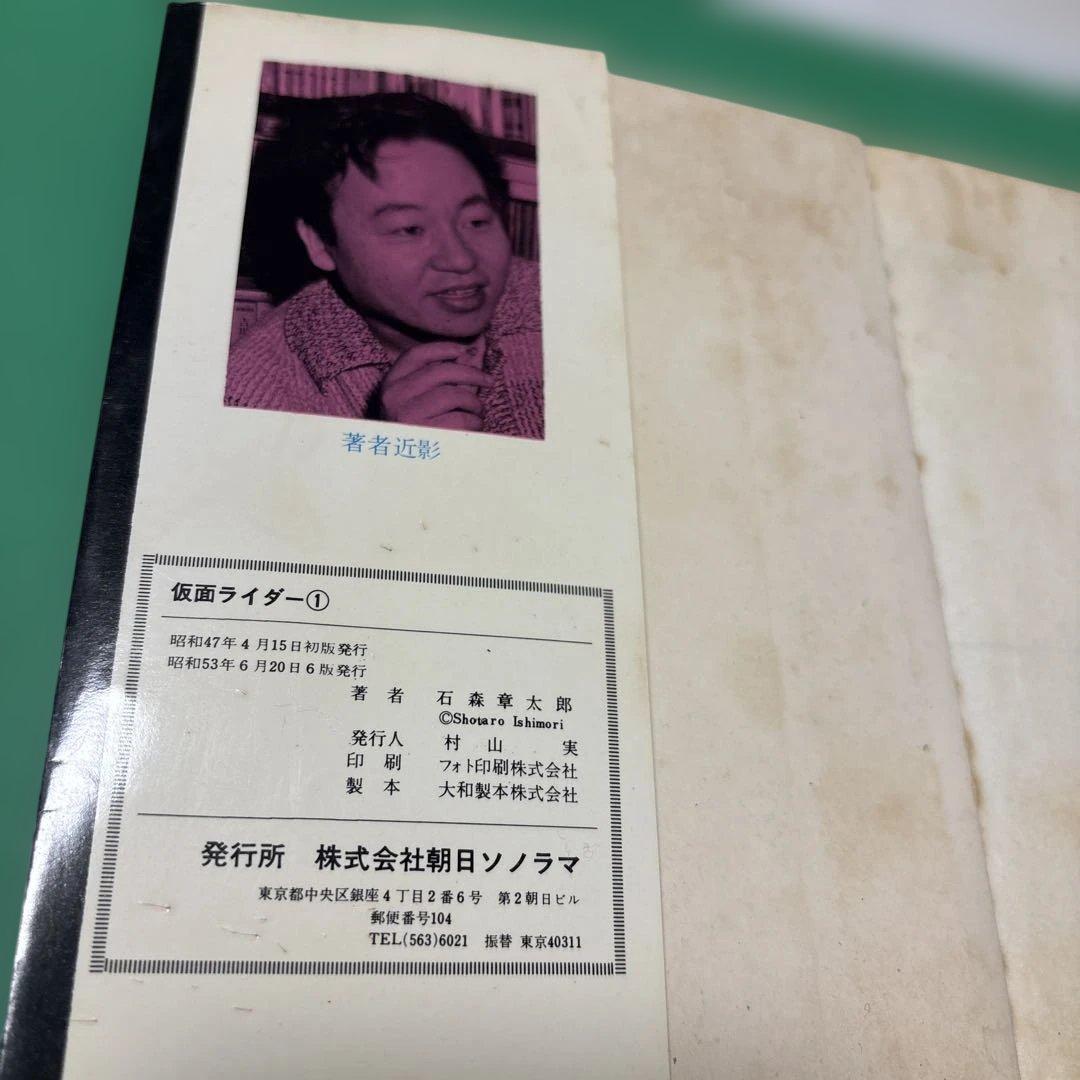 著者近影
仮面ライダー①
昭和47年4月15日初版発行
昭和53年6月20日6版発行
著者 石森章太郎
©Shotaro Ishimori
発行人 村山 実
印刷 フォト印刷株式会社
製本 大和製本株式会社
発行所 株式会社朝日ソノラマ
東京都中央区銀座4丁目2番6号 第2朝日ビル
郵便番号104
TEL(563)6021 振替 東京40311